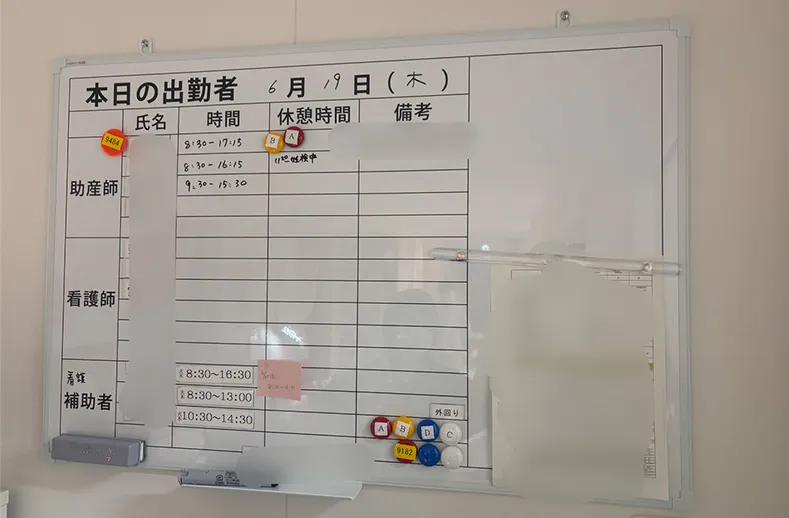 本日の出勤者 6月19日(木)
氏名 時間 休憩時間 備考
9484
B A
助産師
8:30-17:15
8:30-16:15
9:30-15:30
看護師
看護
補助者
8:30~16:30
8:30~13:00
10:30~14:30
外回り
A B D C
9182